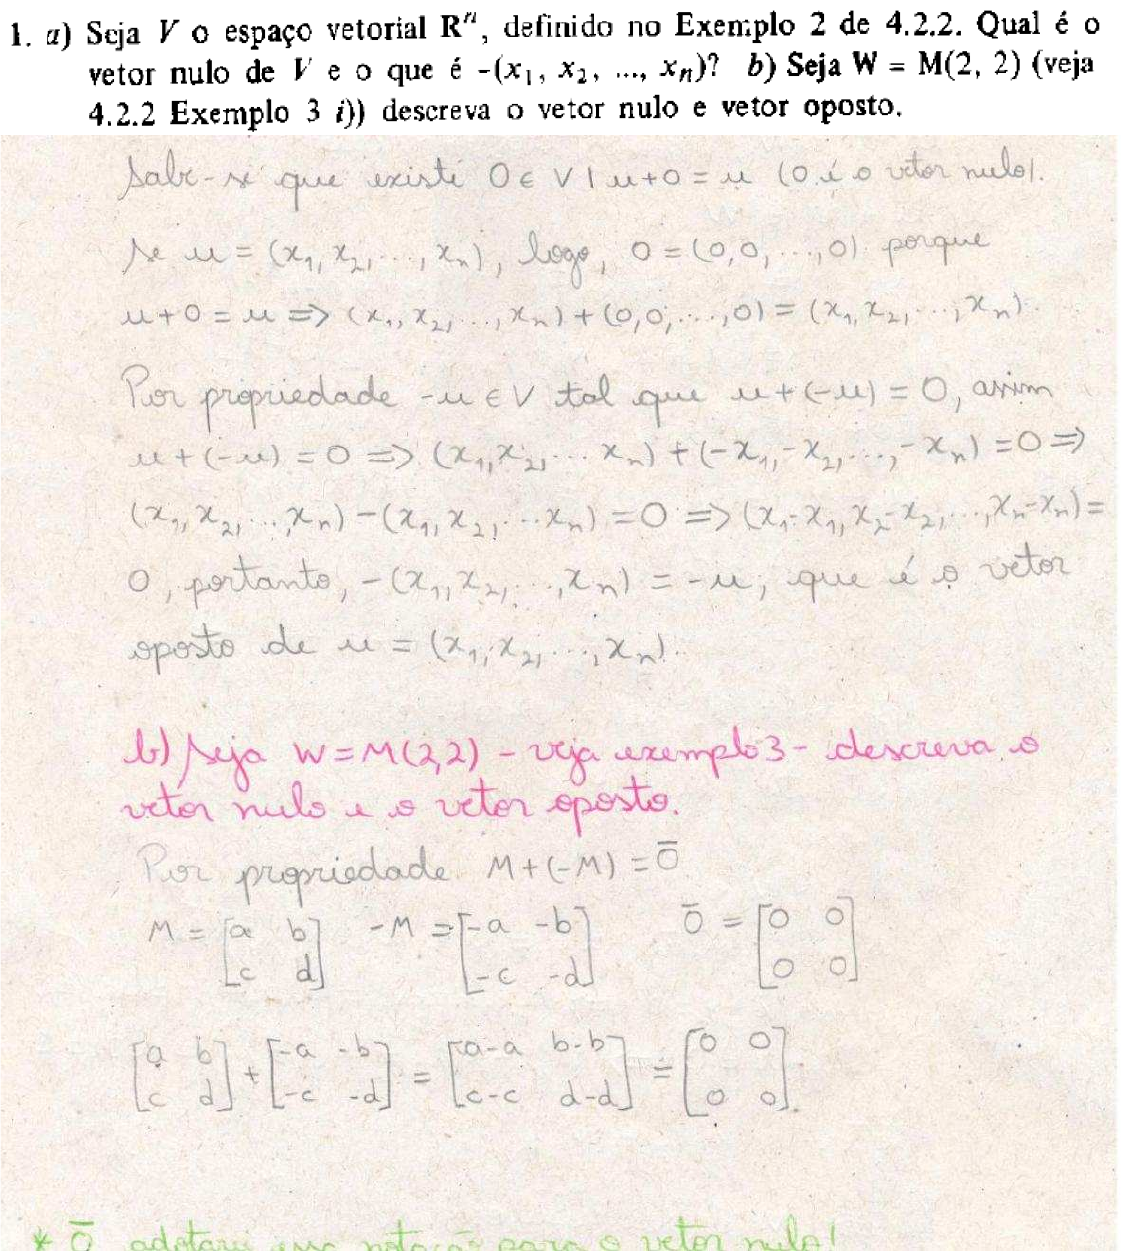 1. a) Seja V o espaço vetorial Rⁿ, definido no Exemplo 2 de 4.2.2. Qual é o
vetor nulo de V e o que é -(x₁, x₂, ..., xₙ)? b) Seja W = M(2, 2) (veja
4.2.2 Exemplo 3 i)) descreva o vetor nulo e vetor oposto.
Sabe-se que existe 0 ∈ V | u+0 = u (0 é o vetor nulo).
Se u = (x₁, x₂, ..., xₙ), logo, 0 = (0,0, ...,0) porque
u+0 = u => (x₁, x₂, ..., xₙ) + (0,0, ...,0) = (x₁, x₂, ..., xₙ).
Por propriedade -u ∈ V tal que u+(-u) = 0, assim
u+(-u) = 0 => (x₁, x₂, ... xₙ) + (-x₁, -x₂, ..., -xₙ) = 0 =>
(x₁, x₂, ..., xₙ) - (x₁, x₂, ... xₙ) = 0 => (x₁-x₁, x₂-x₂, ..., xₙ-xₙ) =
0, portanto, -(x₁, x₂, ..., xₙ) = -u, que é o vetor
oposto de u = (x₁, x₂, ..., xₙ).
b) Seja W = M(2,2) - veja exemplo 3 - descreva o
vetor nulo e o vetor oposto.
Por propriedade M+(-M) = 0̅
M = [a b; c d] -M = [-a -b; -c -d] 0̅ = [0 0; 0 0]
[a b; c d] + [-a -b; -c -d] = [a-a b-b; c-c d-d] = [0 0; 0 0].
* 0̅ adotarei essa notação para o vetor nulo!